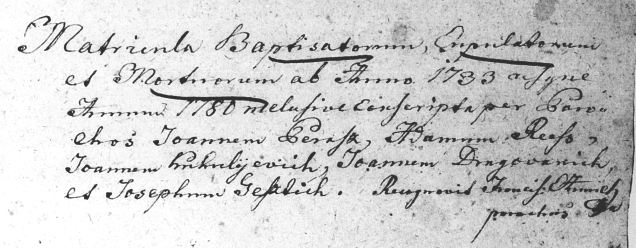 Matricula Baptisatorum, Cupulatorum
et Mortuorum ab Anno 1733 usque
Annum 1780 inclusive conscripta per Paro
chos Joannem Perasz, Adamum Rees,
Joannem Kukulyevich, Joannem Dragovanich,
et Josephum Gesztich. Recognovit Francis.
parochus